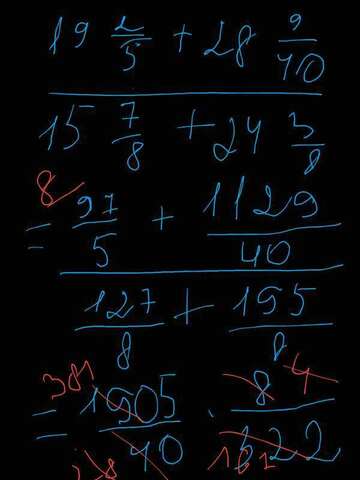 19 2/5 + 28 9/40
15 7/8 + 24 3/8
8
= 97/5 + 1129/40
127/8 + 195/8
381 4
= 1905/40 · 8/322
161